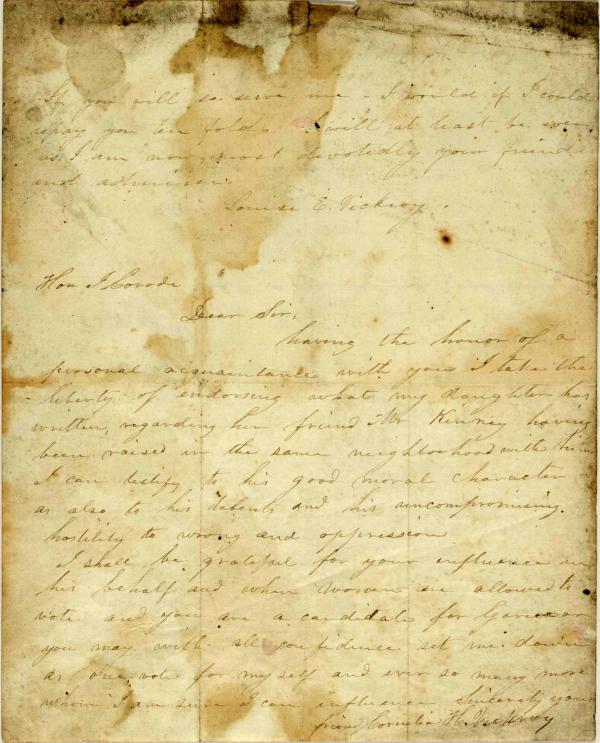 If you will so serve me - I would if I could
repay you ten fold. I will at least be ever
as I am now, most devotedly your friend
and admirer.
Louise E. Vickroy.
Hon J Covode
Dear Sir,
having the honor of a
personal acquaintance with you I take the
liberty of endorsing what my daughter has
written, regarding her friend Mr Kinney having
been raised in the same neighborhood with him
I can testify to his good moral character
as also to his talents and his uncompromising
hostility to wrong and oppression
I shall be grateful for your influence in
his behalf and when women are allowed to
vote and you are a candidate for
you may with all confidence set me down
as one vote for myself and ever so many more
whom I am sure I can influence Sincerely your
friend Cornelia H. Vickroy